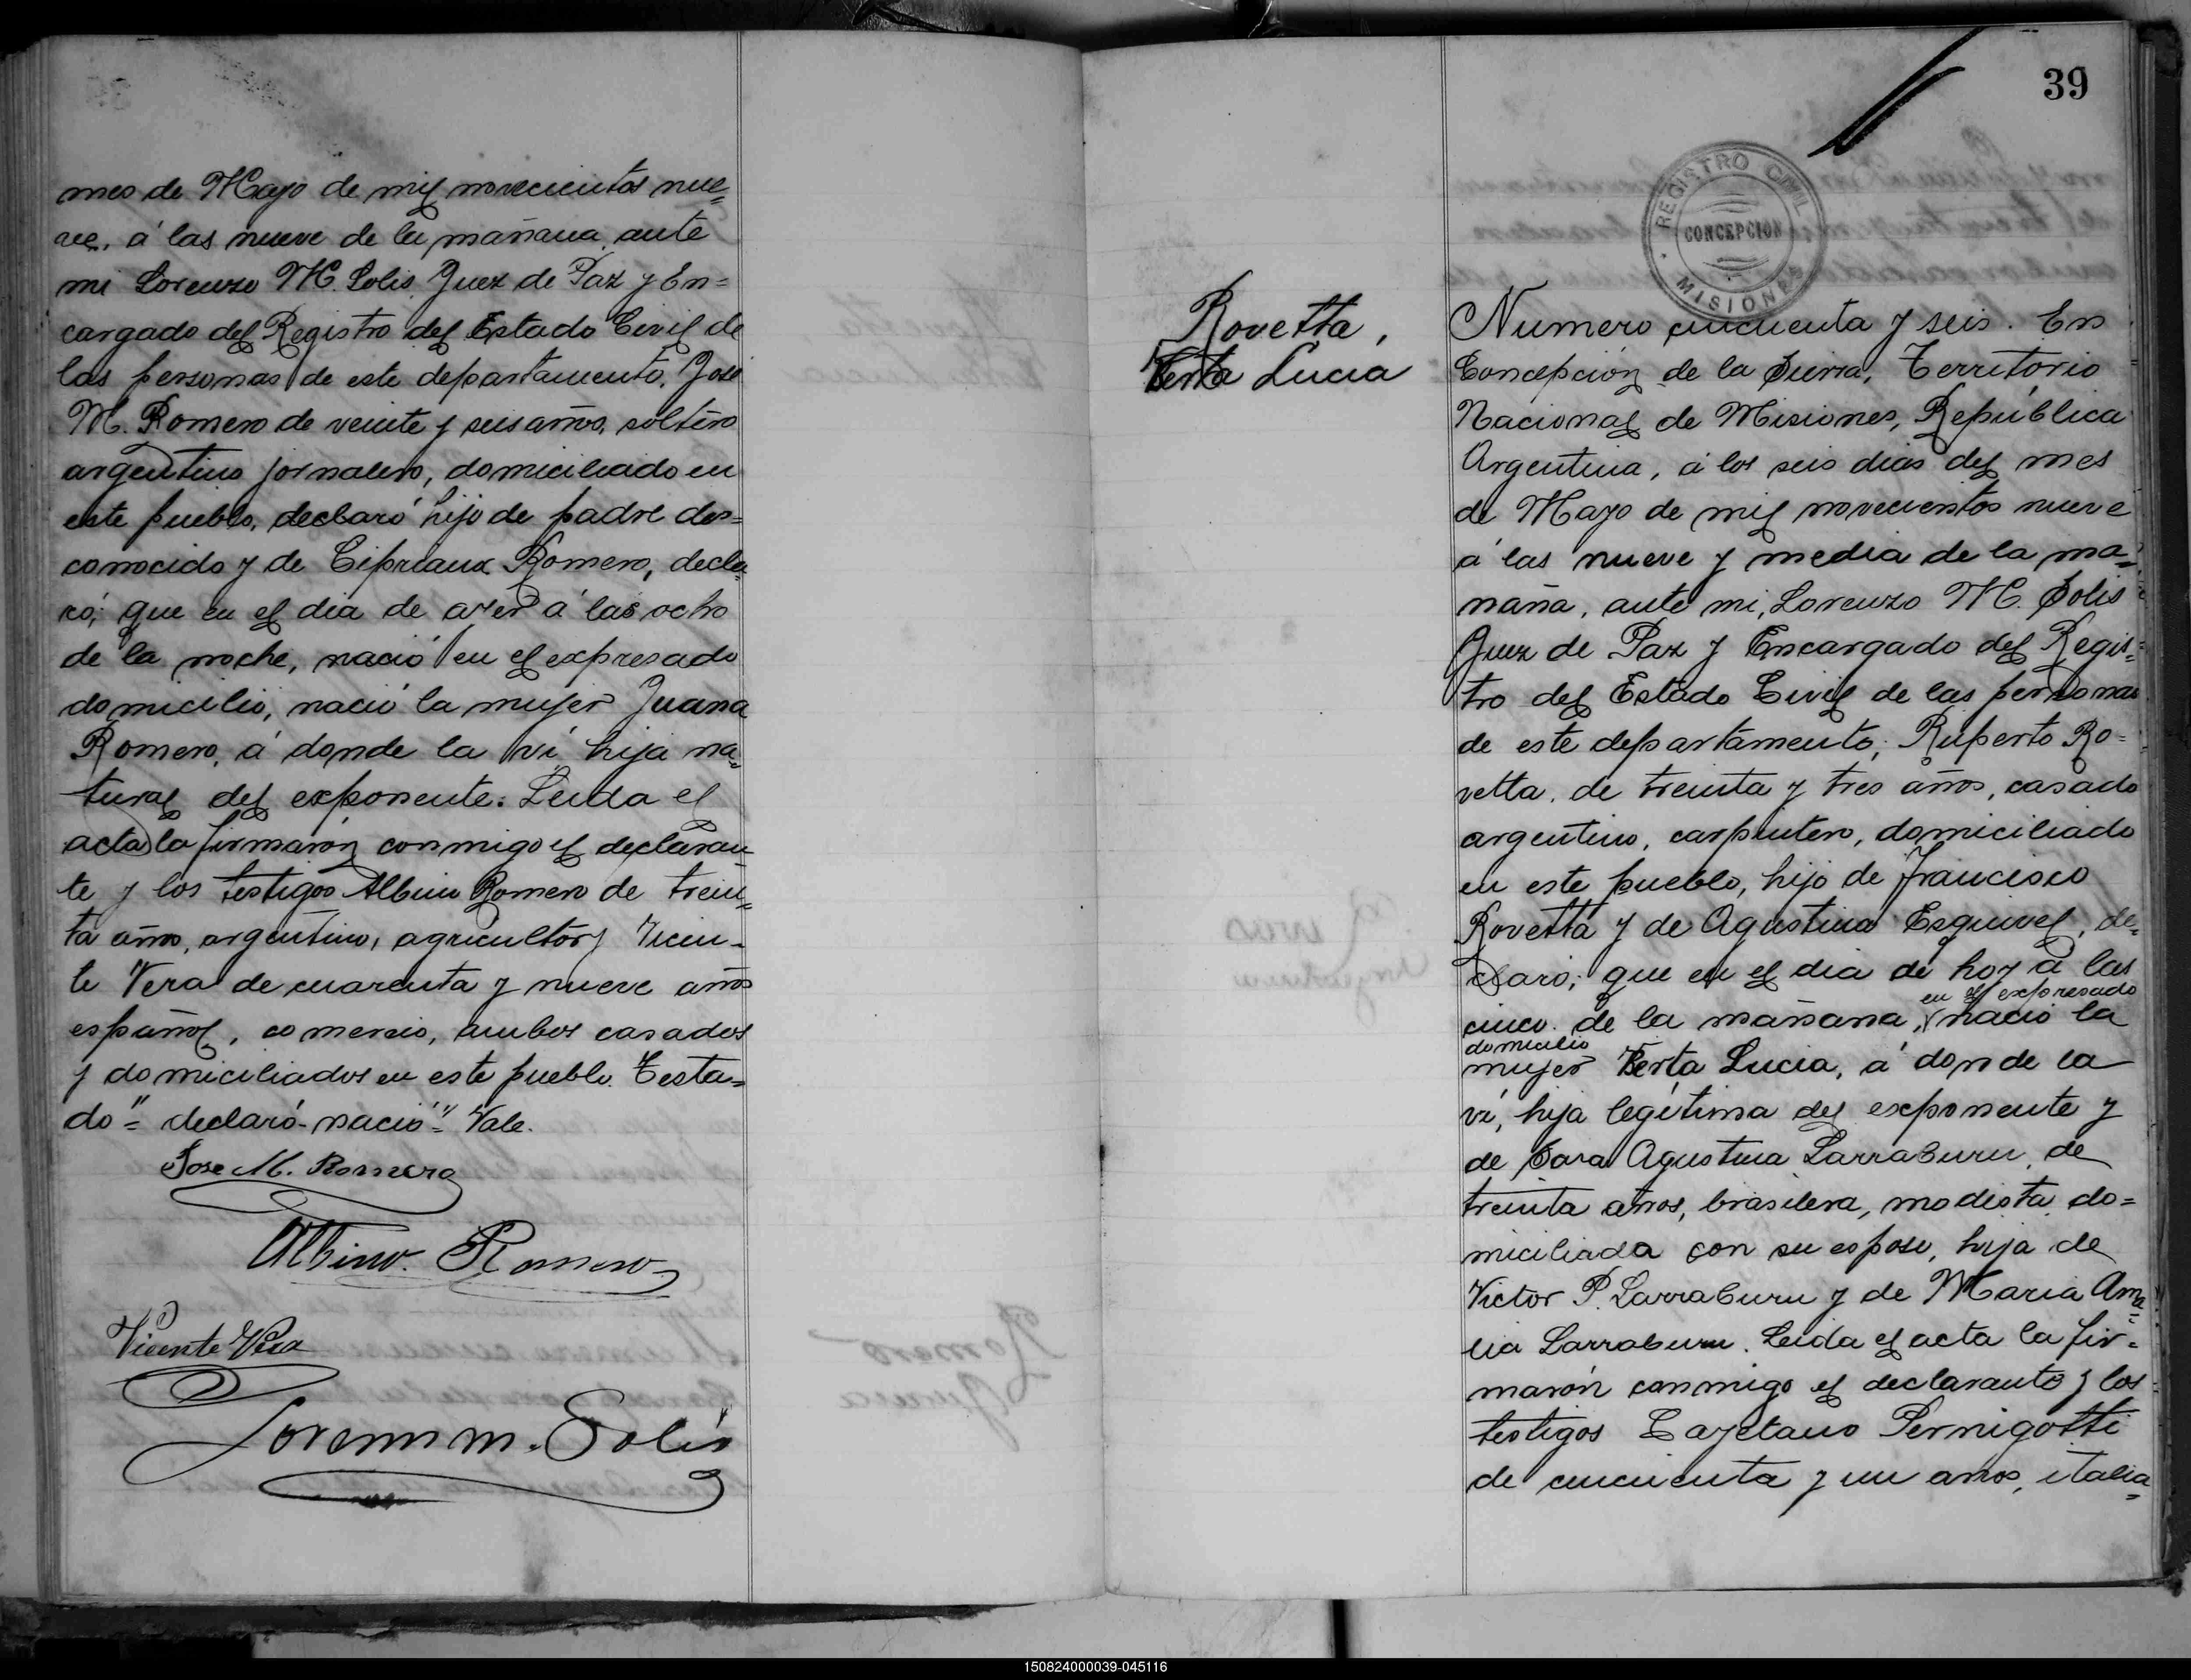 mes de Mayo de mil novecientos nue=
ve, á las nueve de la mañana, ante
mi Lorenzo M. Solis, Juez de Paz y En=
cargado del Registro del Estado Civil de
las personas de este departamento, José
M. Romero de veinte y seis años, soltero
argentino jornalero, domiciliado en
este pueblo, declaró hijo de padre des=
conocido y de Cipriana Romero, decla=
ró; que en el dia de ayer á las ocho
de la noche, nació en el expresado
domicilio, nació la mujer Juana
Romero, á donde la ví hija na=
tural del exponente. Leida el
acta la firmarón conmigo el declaran=
te y los testigos Albino Romero de trein=
ta años, argentino, agricultor y Vicen=
te Vera de cuarenta y nueve años
español, comercio, ambos casados
y domiciliados en este pueblo. Testa=
do "declaró-nació" Vale.
Jose M. Romero
Albino Romero
Vicente Vera
Lorenzo M. Solis
39
REGISTRO CIVIL
CONCEPCION
MISIONES
Rovetta,
Berta Lucia
Numero cincuenta y seis. En
Concepción de la Sierra, Territorio
Nacional de Misiones, República
Argentina, á los seis dias del mes
de Mayo de mil novecientos nueve
á las nueve y media de la ma=
ñana, ante mi, Lorenzo M. Solis
Juez de Paz y Encargado del Regis=
tro del Estado Civil de las personas
de este departamento; Ruperto Ro=
vetta, de treinta y tres años, casado
argentino, carpintero, domiciliado
en este pueblo, hijo de Francisco
Rovetta y de Agustina Esquivel, de=
claró; que en el dia de hoy á las
en el expresado
cinco de la mañana, nació la
domicilio
mujer Berta Lucia, á donde la
ví, hija legítima del exponente y
de Sara Agustina Larraburu, de
treinta años, brasilera, modista, do=
miciliada con su esposo, hija de
Victor P. Larraburu y de Maria Ama=
lia Larraburu. Leida el acta la fir=
marón conmigo el declarante y los
testigos Cayetano Pernigotti
de cincuenta y un años, italia=
150824000039-045116